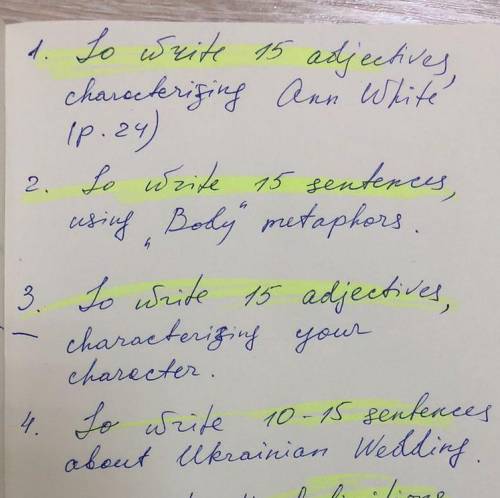 1. To write 15 adjectives,
characterizing Ann White
(p. 24)
2. To write 15 sentences,
using „Body" metaphors.
3. To write 15 adjectives,
characterizing your
character.
4. To write 10-15 sentences
about Ukrainian Wedding.